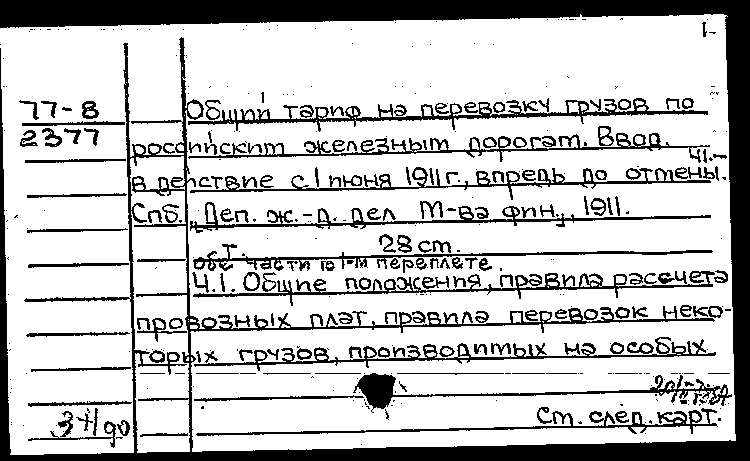 1-
77-8
2377
Общий тариф на перевозку грузов по
российским железным дорогам. Ввод.
41.-
в действие с 1 июня 1911 г., впредь до отмены.
Спб., Деп. ж.-д. дел М-ва фин., 1911.
28 cm.
обе части в 1-м переплете.
Ч.1. Общие положения, правила рассчета
провозных плат, правила перевозок неко-
торых грузов, производимых на особых
См. след. карт.